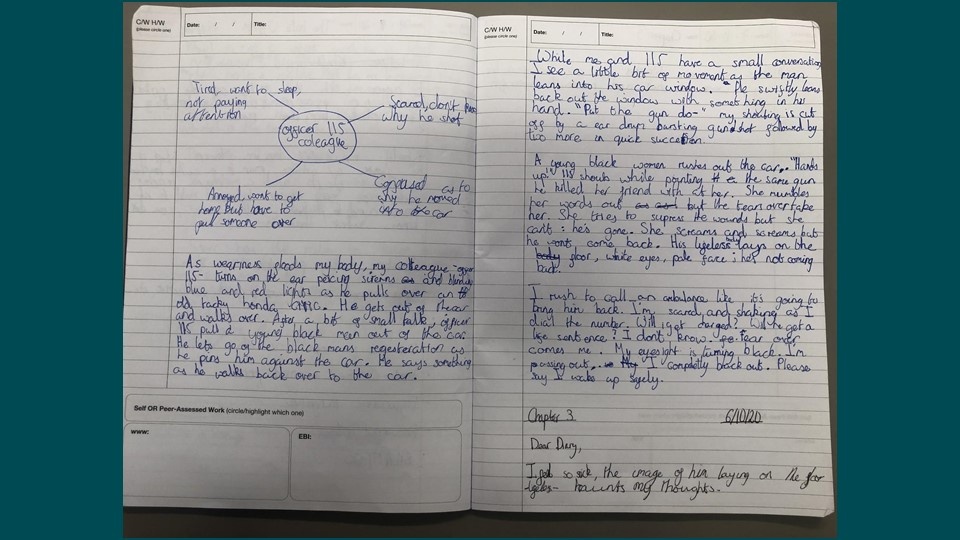 C/W H/W
(please circle one)
Date: / /
Title:
Tired, want to sleep,
not paying
attention
Scared, don't
why he shot
officer 115
coleague
Annoyed, want to get
home but have to
pull someone over
Confused as to
why he moved
into the car
As weariness floods my body, my colleague -
115- turns on the ear percing sirens and
blue and red lights as he pulls over an
old, tacky honda civic. He gets out of the car
and walks over. After a bit of small talk, officer
115 pull a young black man out of the car.
He lets go of the black mans regesteration as
he pins him against the car. He says something
as he walks back over to the car.
Self OR Peer-Assessed Work (circle/highlight which one)
WWW:
EBI:
C/W H/W
(please circle one)
Date: / /
Title:
While me and 115 have a small conversation
I see a little bit of movement as the man
leans into his car window. He swiftly leans
back out the window with something in his
hand. "Put the gun do-" my shouting is cut
off by a ear drum bursting gunshot followed by
two more in quick
A young black women rushes out the car. "Hands
up" 115 shouts while pointing the same gun
he killed her friend with at her. She mumbles
her words out but the tears overtake
her. She tries to supress the wounds but she
cant: he's gone. She screams and screams but
he wont come back. His lifeless body lays on the
floor, white eyes, pale face: he's not coming
back.
I rush to call an ambulance like it's going to
bring him back. I'm scared and shaking as I
dial the number. Will I get charged? Will he get a
life sentence? I don't know. fear over
comes me. My eyesight is turning black. I'm
passing out. I completly black out. Please
say I wake up safely.
Chapter 3
6/10/20
Dear Diary,
I feel so sick, the image of him laying on the floor
- haunts my thoughts.